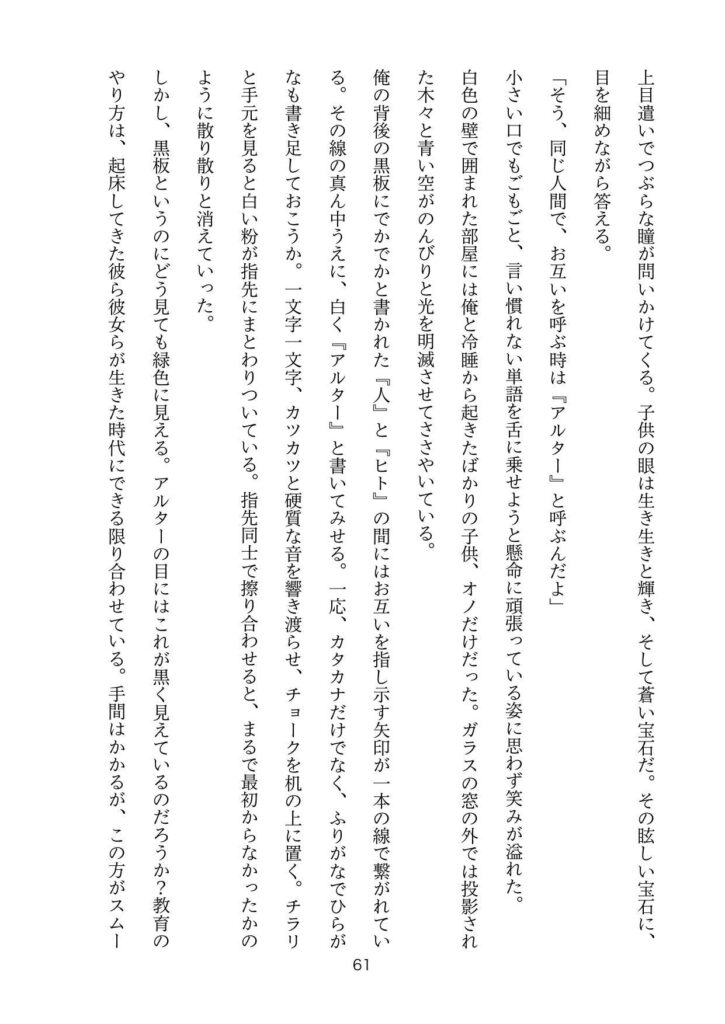 上目遣いでつぶらな瞳が問いかけてくる。子供の眼は生き生きと輝き、そして蒼い宝石だ。その眩しい宝石に、
目を細めながら答える。
「そう、同じ人間で、お互いを呼ぶ時は『アルター』と呼ぶんだよ」
小さい口でもごもごと、言い慣れない単語を舌に乗せようと懸命に頑張っている姿に思わず笑みが溢れた。
白色の壁で囲まれた部屋には俺と冷睡から起きたばかりの子供、オノだけだった。ガラスの窓の外では投影され
た木々と青い空がのんびりと光を明滅させてささやいている。
俺の背後の黒板にでかでかと書かれた『人』と『ヒト』の間にはお互いを指し示す矢印が一本の線で繋がれてい
る。その線の真ん中うえに、白く『アルター』と書いてみせる。一応、カタカナだけでなく、ふりがなでひらが
なも書き足しておこうか。一文字一文字、カツカツと硬質な音を響き渡らせ、チョークを机の上に置く。チラリ
と手元を見ると白い粉が指先にまとわりついている。指先同士で擦り合わせると、まるで最初からなかったかの
ように散り散りと消えていった。
しかし、黒板というのにどう見ても緑色に見える。アルターの目にはこれが黒く見えているのだろうか？教育の
やり方は、起床してきた彼ら彼女らが生きた時代にできる限り合わせている。手間はかかるが、この方がスムー
61